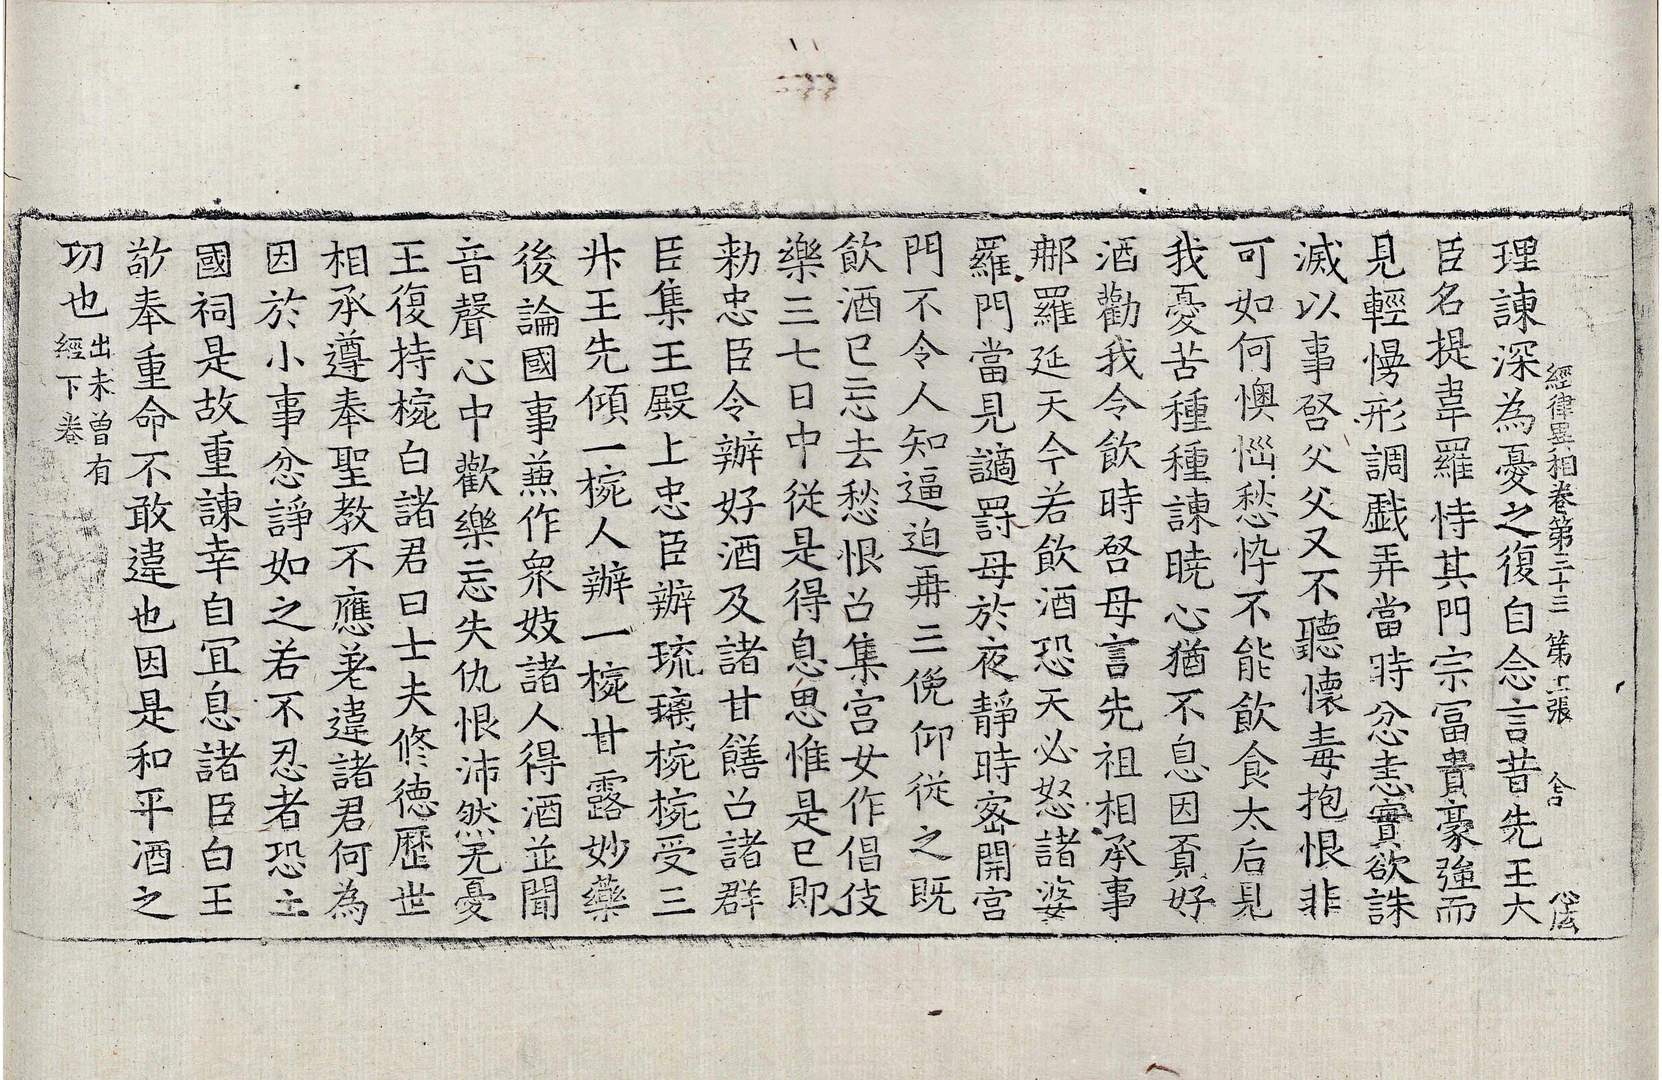 經律異相卷第三十三 第二張 舍
理諫深為憂之復自念言昔先王大
臣名提韋羅恃其門宗冨貴豪強而
見輕慢形調戲弄當時忿恚實欲誅
滅以事啓父父又不聽懷毒抱恨非
可如何懊惱愁忰不能飲食太后見
我憂苦種種諫曉心猶不息因頁好
酒勸我令飲時啓母言先祖相承事
那羅延天今若飲酒恐天必怒諸婆
羅門當見讁罸母於夜靜時密開宮
門不令人知逼迫再三俛仰從之既
飲酒已忘去愁恨召集宮女作倡伎
樂三七日中從是得息思惟是已即
勑忠臣令辦好酒及諸甘饍召諸群
臣集王殿上忠臣辦琉璃椀椀受三
升王先傾一椀人辦一椀甘露妙藥
後論國事蕪作衆妓諸人得酒並聞
音聲心中歡樂忘失仇恨沛然无憂
王復持椀白諸君曰士夫修德歷世
相承遵奉聖教不應差違諸君何為
因於小事忿諍如之若不忍者恐亡
國祠是故重諫幸自冝息諸臣白王
敬奉重命不敢違也因是和平酒之
功也 出未曾有經下卷